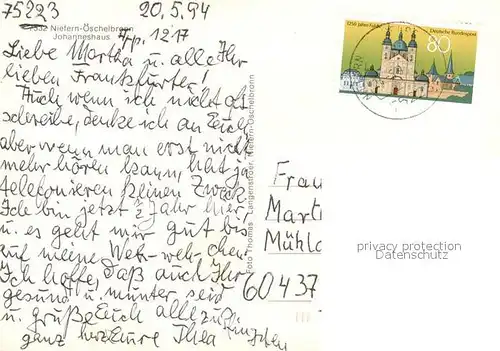 75223
20.5.94
7532 Niefern-Öschelbronn
Johanneshaus
App. 1217
Liebe Martha u. alle Ihr
lieben Frankfurter!
Auch wenn ich nicht oft
schreibe, denke ich an Euch
aber wenn man erst nicht
mehr hören kann, hat ja
telefonieren keinen Zweck
Ich bin jetzt Jahr hier,
u. es geht mir gut bis
auf meine Weh-weh-chen.
Ich hoffe, daß auch Ihr
gesund u. munter seid
u. grüße Euch alle
ganz herz Eure Thea
Foto Thomas Langensteiner, Niefern-Öschelbronn
1250 Jahre Fulda
Deutsche Bundespost
80
Frau
Mart
Mühl
60437
privacy protection
Datenschutz